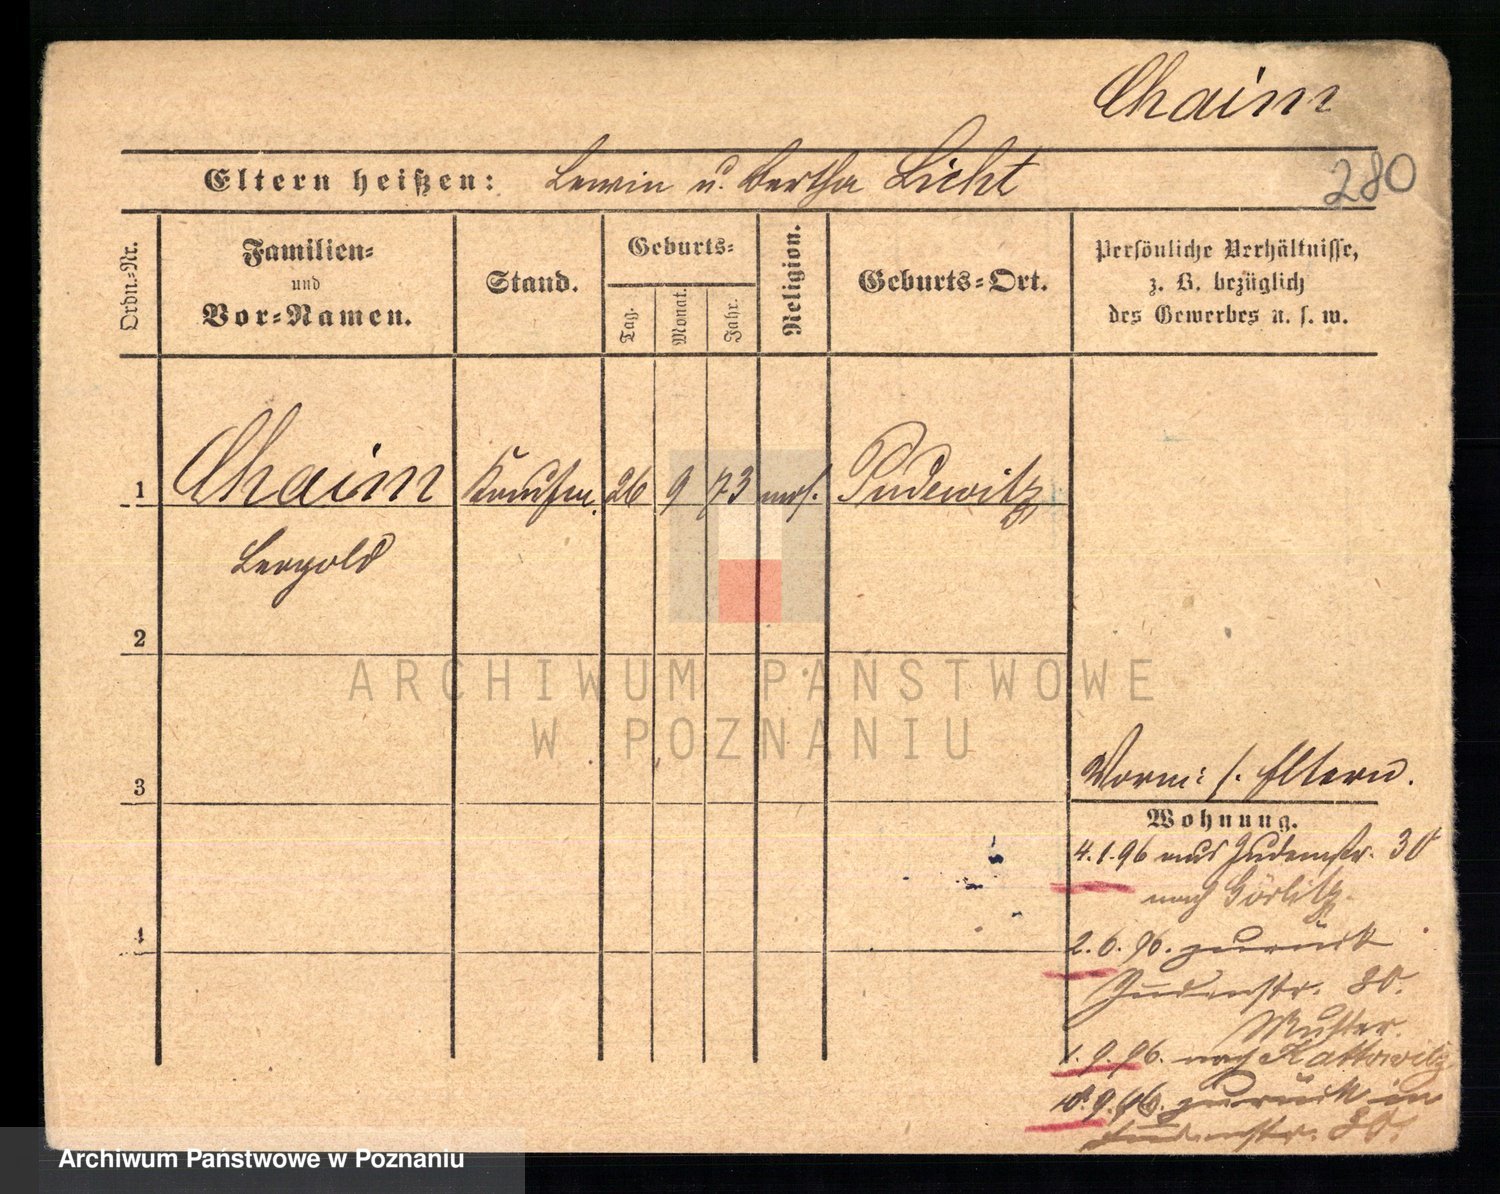 Chaim
280
Eltern heißen: Lewin u. Bertha Licht
Ordn.=Nr.
Familien=
und
Vor=Namen.
Stand.
Geburts=
Tag.
Monat.
Jahr.
Religion.
Geburts=Ort.
Persönliche Verhältnisse,
z. B. bezüglich
des Gewerbes u. s. w.
1 Chaim Kaufm. 26 9 73 mos. Pudewitz
Leopold
2
ARCHIWUM PAŃSTWOWE
W POZNANIU
3
Vorm: s. Eltern.
Wohnung.
4.1.96 aus Judenstr. 30
nach Görlitz.
4
2.6.96. zurück
Judenstr. 30.
Mutter
1.9.96. nach Kattowitz
9.96. zurück in
Judenstr. 30.
Archiwum Państwowe w Poznaniu